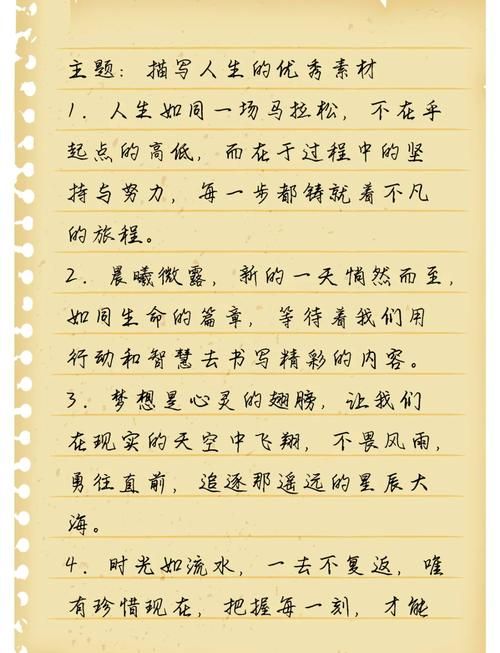 主题：描写人生的优秀素材
1．人生如同一场马拉松，不在乎
起点的高低，而在于过程中的坚
持与努力，每一步都铸就着不凡
的旅程。
2．晨曦微露，新的一天悄然而至，
如同生命的篇章，等待着我们用
行动和智慧去书写精彩的内容。
3．梦想是心灵的翅膀，让我们
在现实的天空中飞翔，不畏风雨，
勇往直前，追逐那遥远的星辰大
海。
4．时光如流水，一去不复返，唯
有珍惜现在，把握每一刻，才能